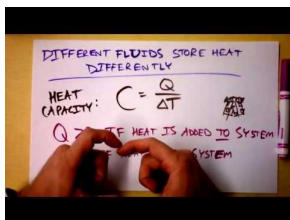 DIFFERENT FLUIDS STORE HEAT
DIFFERENTLY
HEAT
CAPACITY: C = Q / ΔT
Q > IF HEAT IS ADDED TO SYSTEM
SYSTEM